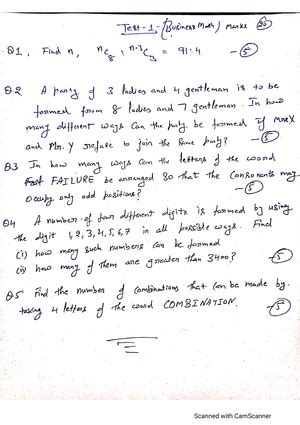 Test-1- (Business Math) Marks 20
Q1, Find n, ⁿC₈ : ⁿ⁻³C₃ = 91:4 -5
Q.2 A party of 3 ladies and 4 gentleman is to be
formed from 8 ladies and 7 gentleman. In how
many different ways can the party be formed if Mrs X
and Mr. Y refuse to join the same party? -5
Q.3 In how many ways can the letters of the word
FAILURE be arranged so that the consonants may
occupy only odd positions? -5
Q4 A number of four different digits is formed by using
the digit 1, 2, 3, 4, 5, 6, 7 in all possible ways. Find
(i) how many such numbers can be formed
(ii) how many of them are greater than 3400? -5
Q.5 Find the number of combinations that can be made by
taking 4 letters of the word COMBINATION. -5
Scanned with CamScanner